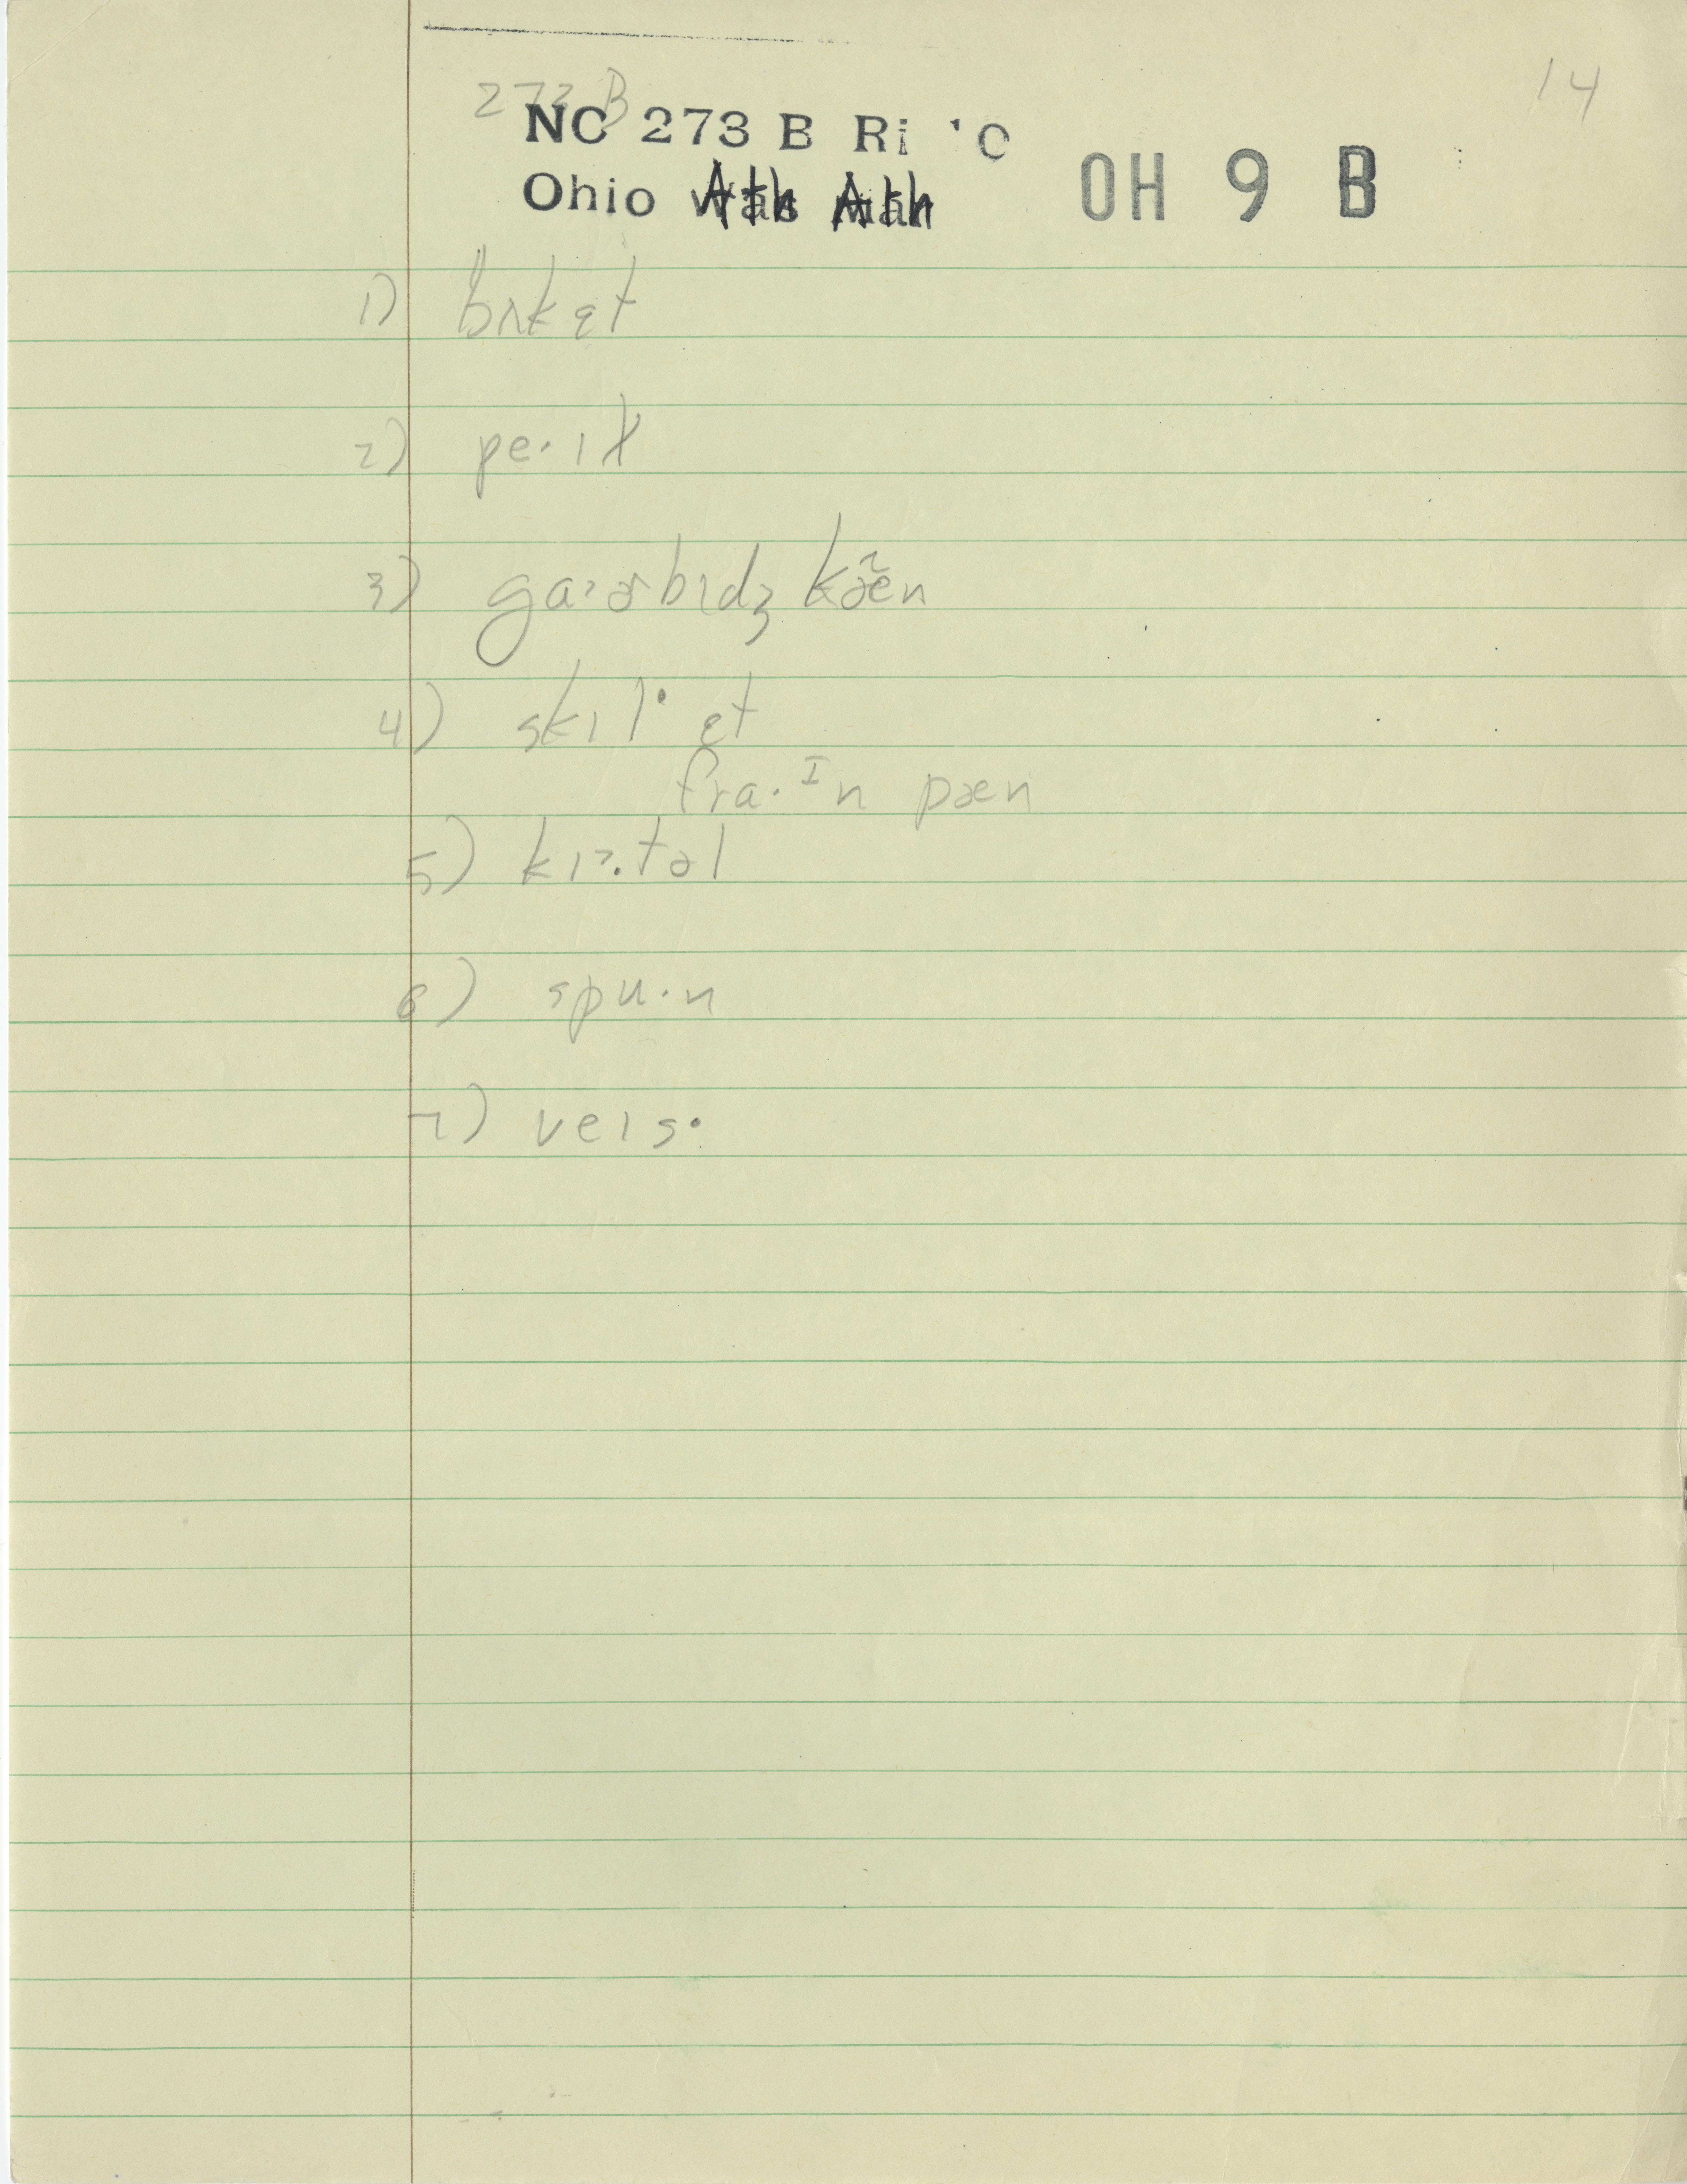 14
273 B
NC 273 B Ri ' C
Ohio Ath Ath OH 9 B
1) bʌkɛt
2) pe·ɪɫ
3) ga·ɚbɪdʒ kæ̃n
4) skɪl· ɛt
fra·ɪn pæn
5) kɪɂ·təl
6) spu·n
7) veɪs·